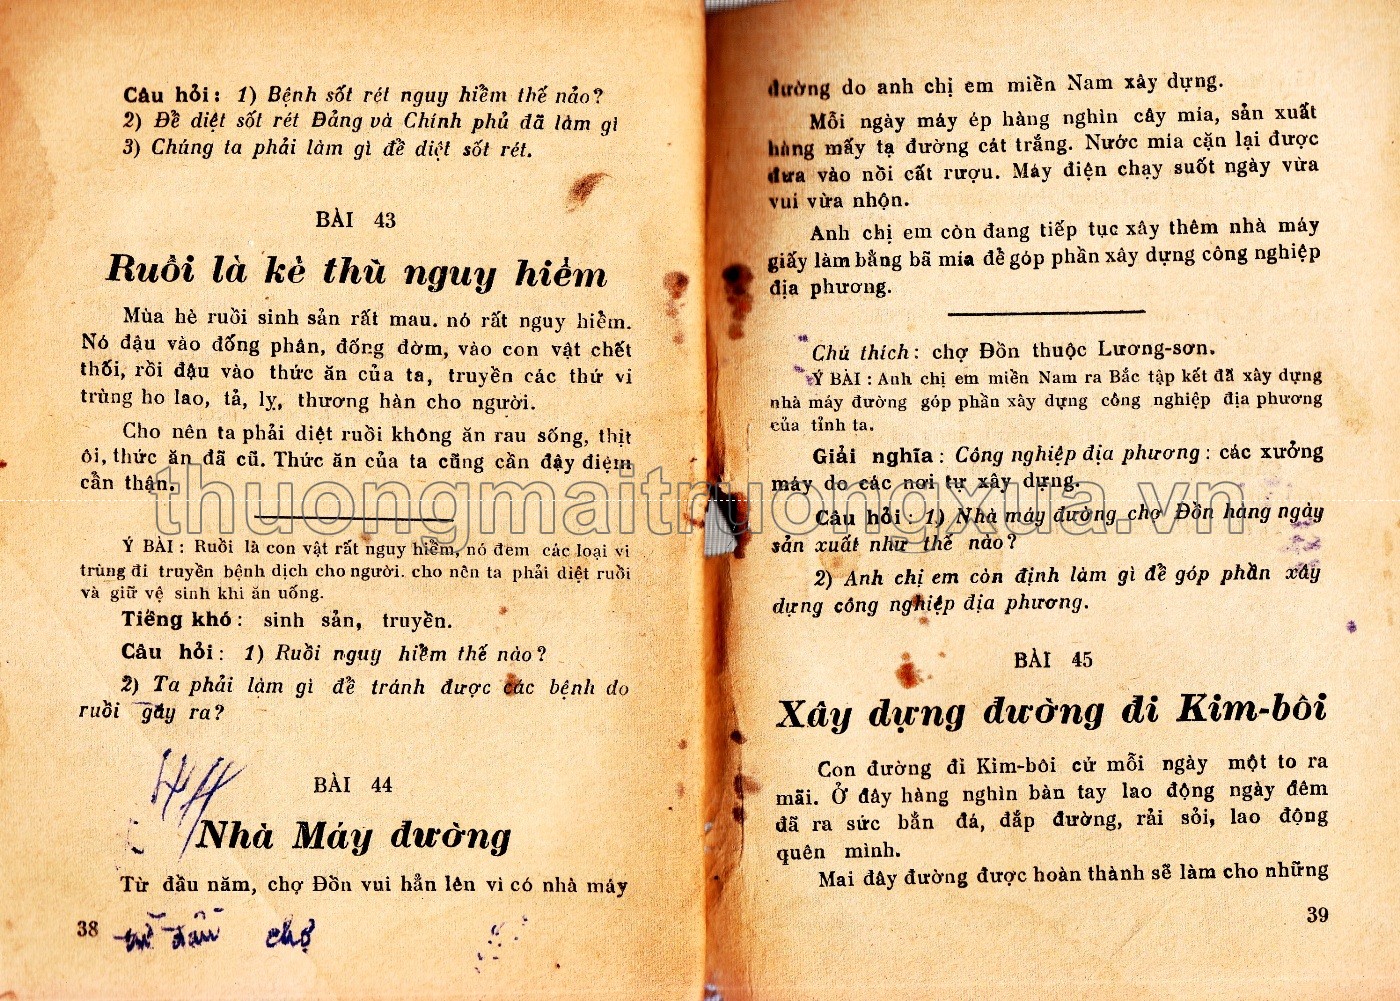 Câu hỏi: 1) Bệnh sốt rét nguy hiểm thế nào?
2) Để diệt sốt rét Đảng và Chính phủ đã làm gì
3) Chúng ta phải làm gì để diệt sốt rét.
BÀI 43
Ruồi là kẻ thù nguy hiểm
Mùa hè ruồi sinh sản rất mau. nó rất nguy hiểm.
Nó đậu vào đống phân, đống đờm, vào con vật chết
thối, rồi đậu vào thức ăn của ta, truyền các thứ vi
trùng ho lao, tả, lỵ, thương hàn cho người.
Cho nên ta phải diệt ruồi không ăn rau sống, thịt
ôi, thức ăn đã cũ. Thức ăn của ta cũng cần đậy điệm
cẩn thận.
Ý BÀI : Ruồi là con vật rất nguy hiểm, nó đem các loại vi
trùng đi truyền bệnh dịch cho người. cho nên ta phải diệt ruồi
và giữ vệ sinh khi ăn uống.
Tiếng khó : sinh sản, truyền.
Câu hỏi : 1) Ruồi nguy hiểm thế nào?
2) Ta phải làm gì để tránh được các bệnh do
ruồi gây ra?
BÀI 44
Nhà Máy đường
Từ đầu năm, chợ Đồn vui hẳn lên vì có nhà máy
38
từ đầu chợ
đường do anh chị em miền Nam xây dựng.
Mỗi ngày máy ép hàng nghìn cây mía, sản xuất
hàng mấy tạ đường cát trắng. Nước mía cặn lại được
đưa vào nồi cất rượu. Máy điện chạy suốt ngày vừa
vui vừa nhộn.
Anh chị em còn đang tiếp tục xây thêm nhà máy
giấy làm bằng bã mía để góp phần xây dựng công nghiệp
địa phương.
Chú thích : chợ Đồn thuộc Lương-sơn.
Ý BÀI : Anh chị em miền Nam ra Bắc tập kết đã xây dựng
nhà máy đường góp phần xây dựng công nghiệp địa phương
của tỉnh ta.
Giải nghĩa : Công nghiệp địa phương : các xưởng
máy do các nơi tự xây dựng.
Câu hỏi : 1) Nhà máy đường chợ Đồn hàng ngày
sản xuất như thế nào?
2) Anh chị em còn định làm gì để góp phần xây
dựng công nghiệp địa phương.
BÀI 45
Xây dựng đường đi Kim-bôi
Con đường đi Kim-bôi cứ mỗi ngày một to ra
mãi. Ở đây hàng nghìn bàn tay lao động ngày đêm
đã ra sức bắn đá, đắp đường, rải sỏi, lao động
quên mình.
Mai đây đường được hoàn thành sẽ làm cho những
39
thuongmaitruongxua.vn